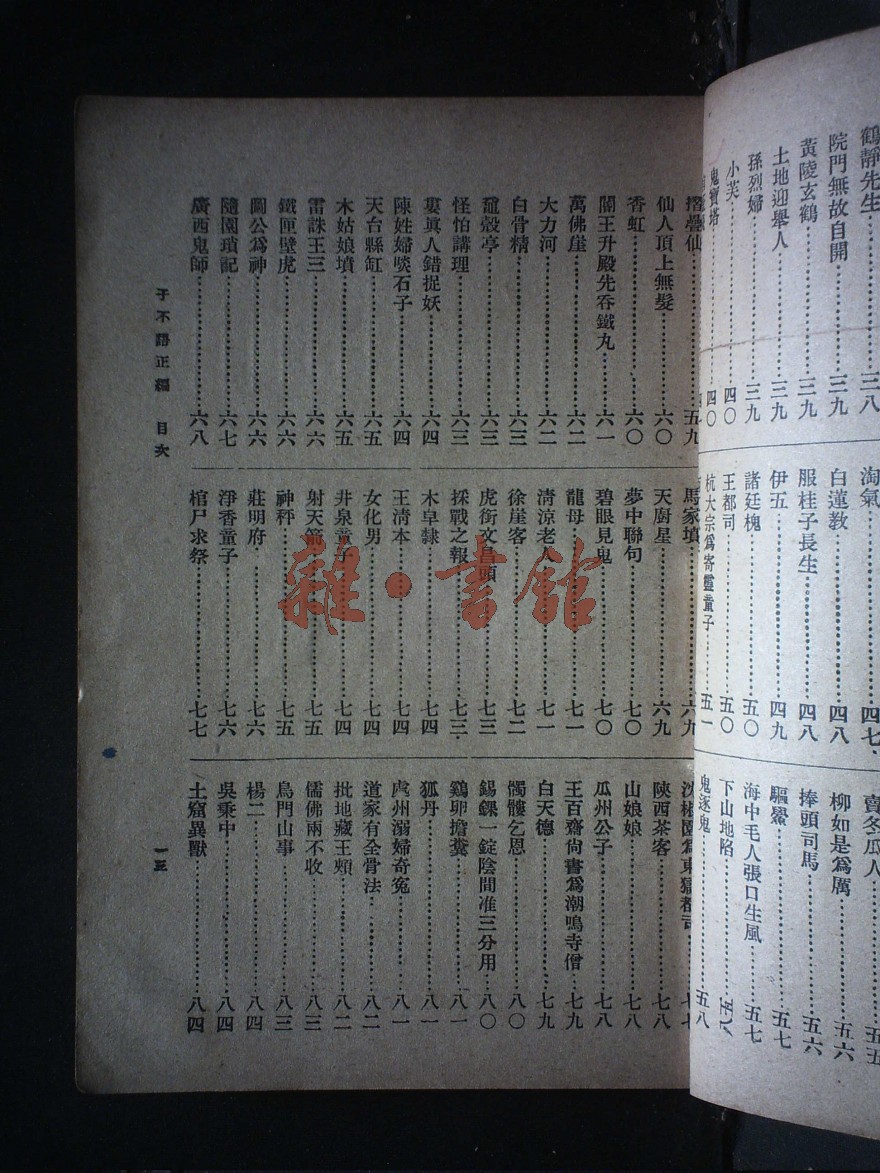 鶴靜先生……三八
院門無故自開……三九
黃陵玄鶴……三九
土地迎舉人……三九
孫烈婦……三九
小芙……四〇
鬼寶塔……四〇
淘氣……四七
白蓮教……四八
服桂子長生……四八
伊五……四九
諸廷槐……五〇
王都司……五〇
杭大宗爲寄靈童子……五一
賣冬瓜人……五五
柳如是爲厲……五六
捧頭司馬……五六
驅鱟……五七
海中毛人張口生風……五七
下山地陷……五八
鬼逐鬼……五八
摺疊仙……五九
仙人頂上無髮……六〇
香虹……六〇
閻王升殿先吞鐵丸……六一
萬佛崖……六二
大力河……六二
白骨精……六三
黿殼亭……六三
怪怕講理……六三
婁眞人錯捉妖……六四
陳姓婦啖石子……六四
天台縣缸……六五
木姑娘墳……六五
雷誅王三……六六
鐵匣壁虎……六六
圖公爲神……六六
隨園瑣記……六七
廣西鬼師……六八
馬家墳……六九
天廚星……六九
夢中聯句……七〇
碧眼見鬼……七〇
龍母……七一
淸涼老人……七一
徐崖客……七二
虎銜文昌頭……七三
採戰之報……七三
木皁隸……七四
王淸本……七四
女化男……七四
井泉童子……七四
射天箭……七五
神秤……七五
莊明府……七六
淨香童子……七六
棺尸求祭……七七
沙椒園爲東嶽都司……七七
陝西茶客……七八
山娘娘……七八
瓜州公子……七八
王百齋尙書爲潮鳴寺僧……七九
白天德……七九
髑髏乞恩……八〇
錫錁一錠陰間准三分用……八〇
鷄卵擔糞……八一
狐丹……八一
處州溺婦奇寃……八一
道家有全骨法……八二
批地藏王頰……八二
儒佛兩不收……八三
烏門山事……八三
楊二……八四
吳秉中……八四
土窟異獸……八四
子不語正編 目次
一三
雜·書館